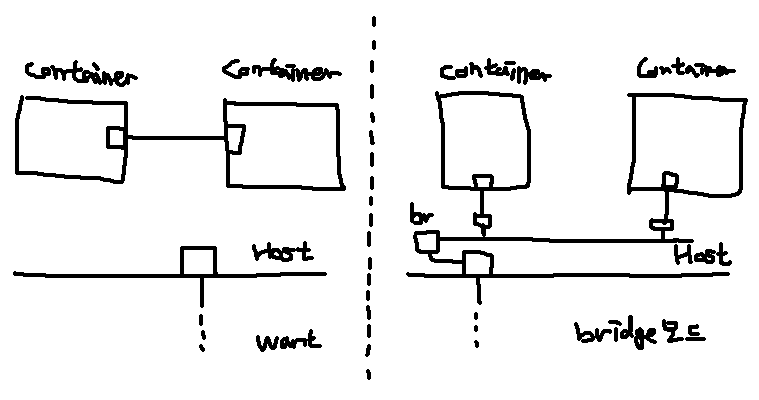 Container
Container
Host
want
Container
Container
br
Host
bridge모드